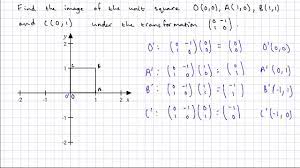 Find the image of the unit square O(0,0), A(1,0), B(1,1)
and C(0,1) under the transformation (0 -1
1 0).
y
2
1
B
O
A
-2 -1 0 1 2 x
-1
-2
O': (0 -1
1 0)(0
0) = (0
0) O'(0,0)
A': (0 -1
1 0)(1
0) = (0
1) A'(0,1)
B': (0 -1
1 0)(1
1) = (-1
1) B'(-1,1)
C': (0 -1
1 0)(0
1) = (-1
0) C'(-1,0)